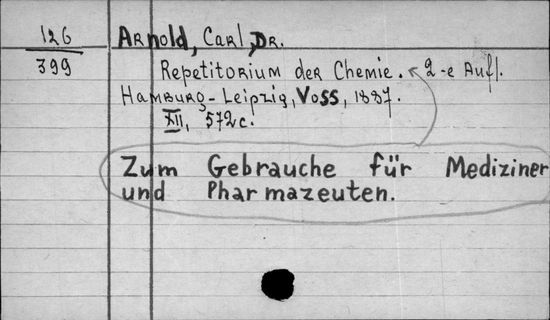 126
399
Arnold, Carl, Dr.
Repetitorium der Chemie. 2-e Aufl.
Hamburg-Leipzig, Voss, 1887.
XII, 572c.
Zum Gebrauche für Mediziner
und Pharmazeuten.